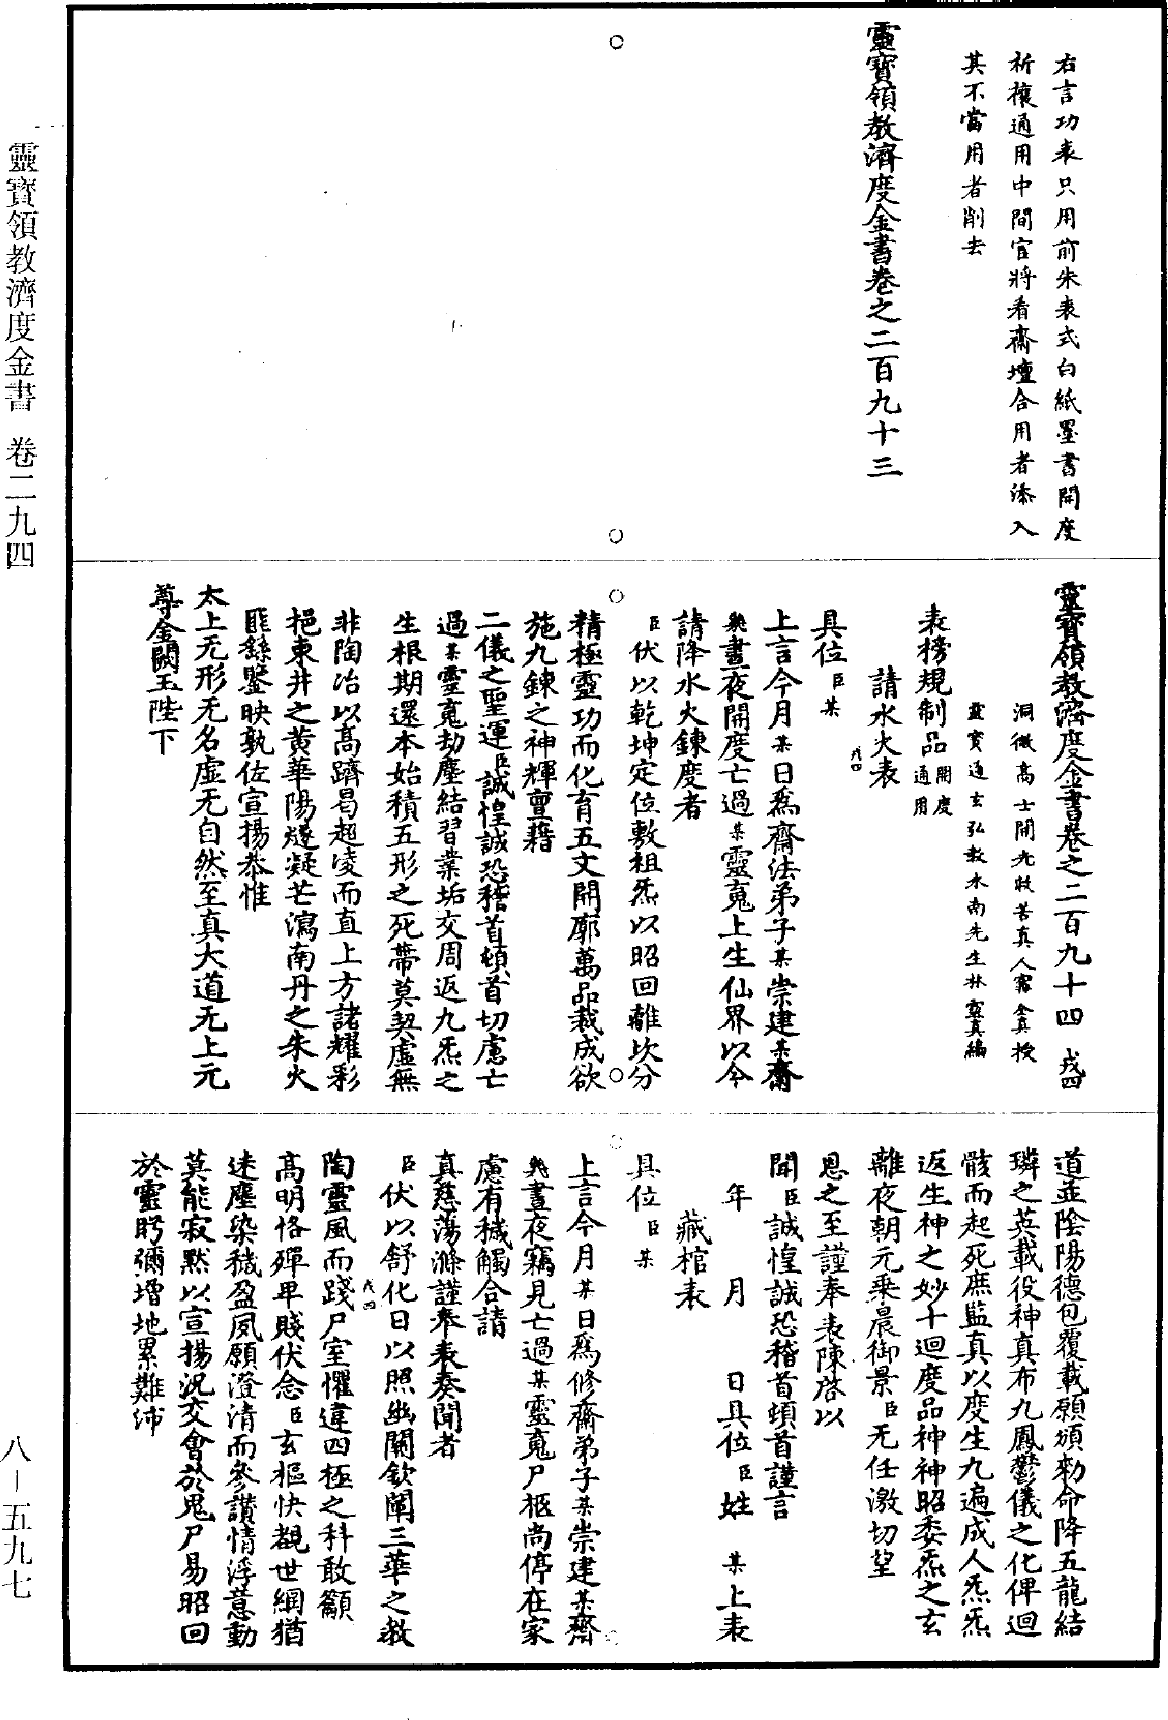 右言功表只用前朱表式白紙墨書開度
祈禳通用中間官將看齋壇合用者添入
其不當用者削去
靈寶領教濟度金書卷之二百九十三
靈寶領教濟度金書卷之二百九十四 戎四
洞微高士開光救苦真人甯全真授
靈寶通玄弘教水南先生林靈真編
表榜規制品開度通用
請水火表
具位臣某
上言今月某日爲齋法弟子某崇建某齋
幾晝夜開度亡過某靈䰟上生仙界以今
請降水火鍊度者
臣伏以乾坤定位敷祖炁以昭回離坎分
精極靈功而化育五文開廓萬品裁成欲
施九鍊之神輝亶藉
二儀之聖運臣誠惶誠恐稽首頓首切慮亡
過某靈䰟劫塵結習業垢交周返九炁之
生根期還本始積五形之死帶莫契虛無
非陶冶以高躋曷起凌而直上方諸耀彩
挹東井之黄華陽燧凝芒瀉南丹之朱火
匪繇鑒映孰佐宣揚恭惟
太上无形无名虛无自然至真大道无上元
尊金闕玉陛下
道並陰陽德包覆載願頒勑命降五龍結
璘之英載役神真布九鳳鬱儀之化俾迴
骸而起死庶監真以度生九遍成人炁炁
返生神之妙十迴度品神神昭委炁之玄
離夜朝元乘晨御景臣无任激切望
恩之至謹奉表陳啓以
聞臣誠惶誠恐稽首頓首謹言
年 月 日具位臣姓 某上表
藏棺表
具位臣某
上言今月某日爲修齋弟子某崇建某齋
幾晝夜竊見亡過某靈䰟尸柩尚停在家
慮有穢觸合請
真慈蕩滌謹奉表奏聞者
臣伏以舒化日以照幽關欽闡三華之教
陶靈風而踐尸室懼違四極之科敢籲
高明恪殫卑賤伏念臣玄樞快覩世網猶
迷塵染穢盈夙願澄清而參讚情浮意動
莫能寂默以宣揚況交會於鬼尸易昭回
於靈眄彌增地累難沛
靈寶領教濟度金書 卷二九四
八—五九七